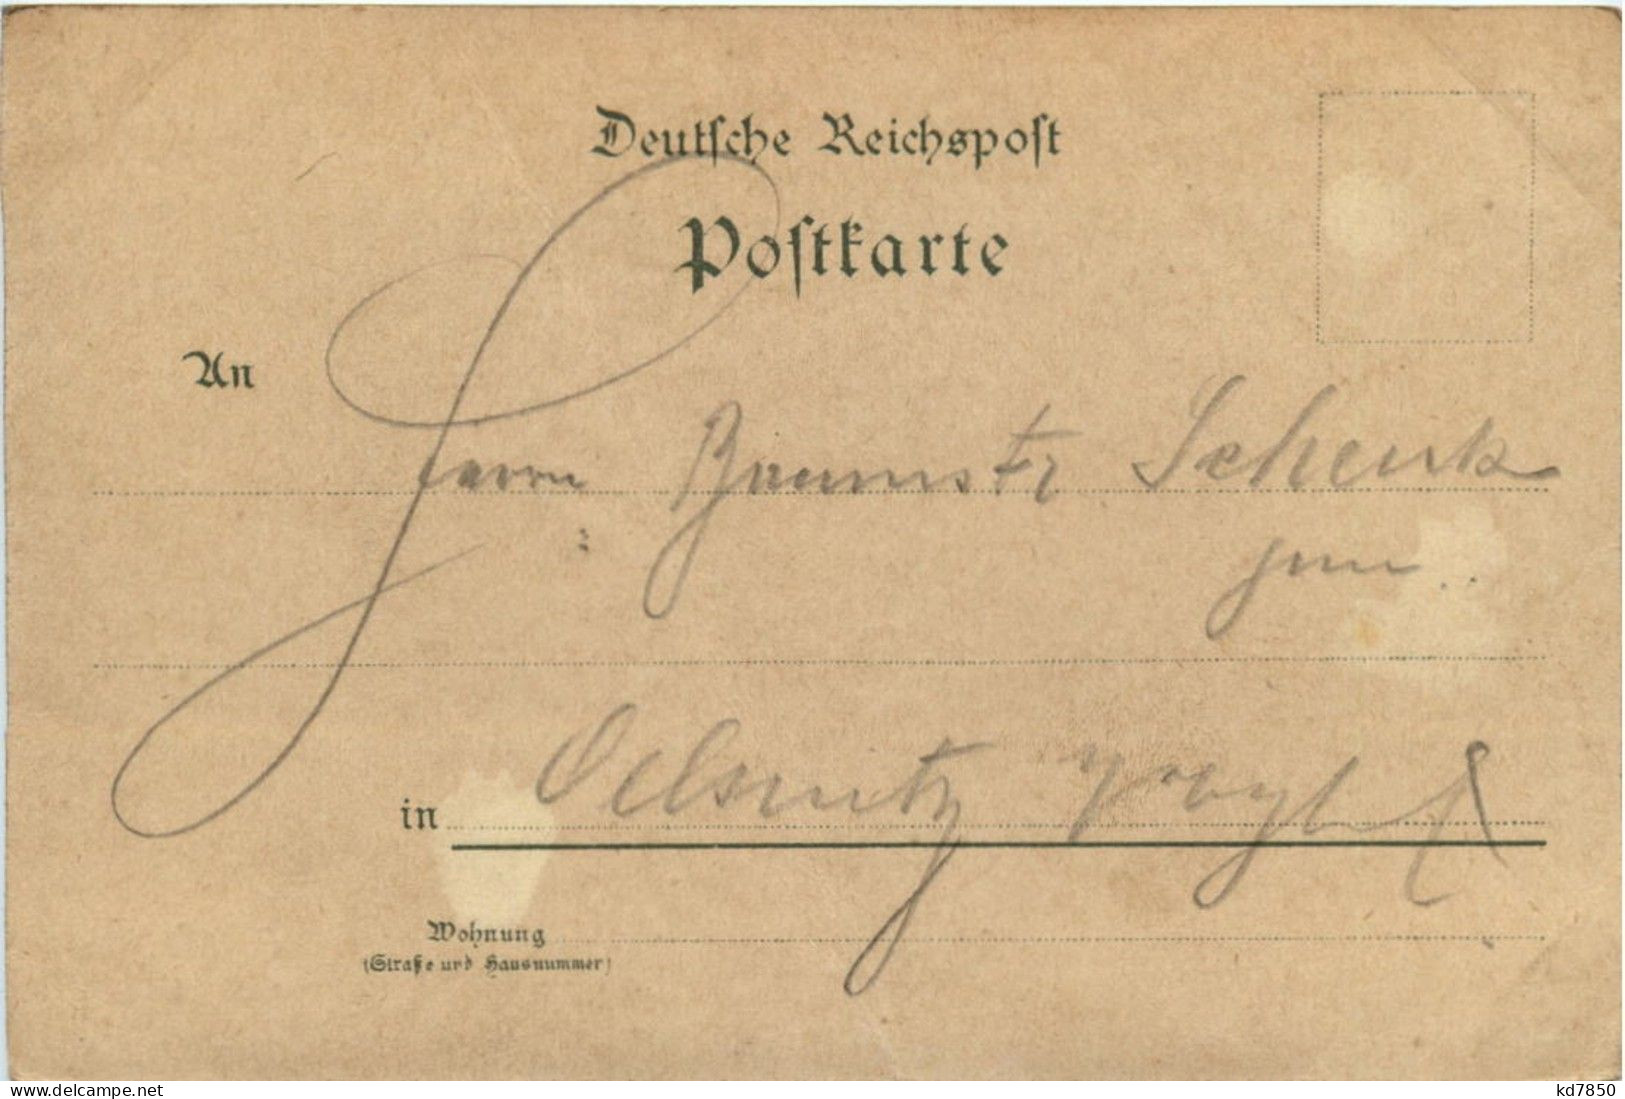 Deutsche Reichspost
Postkarte
An
Herrn Baumstr Schenk
jun..
in Oelsnitz Vogtl
Wohnung
(Straße und Hausnummer)
www.delcampe.net kd7850